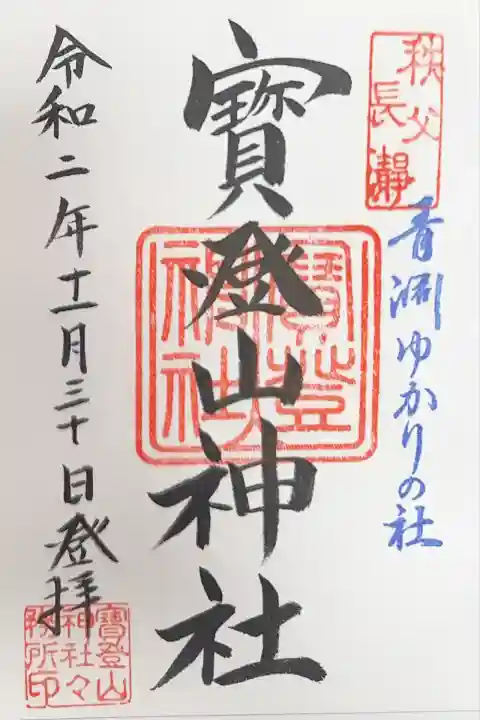 秩父
長瀞
青淵ゆかりの社
寶登山神社
寶登山
神社
令和二年十一月三十日登拝
寶登山
神社々
務所印